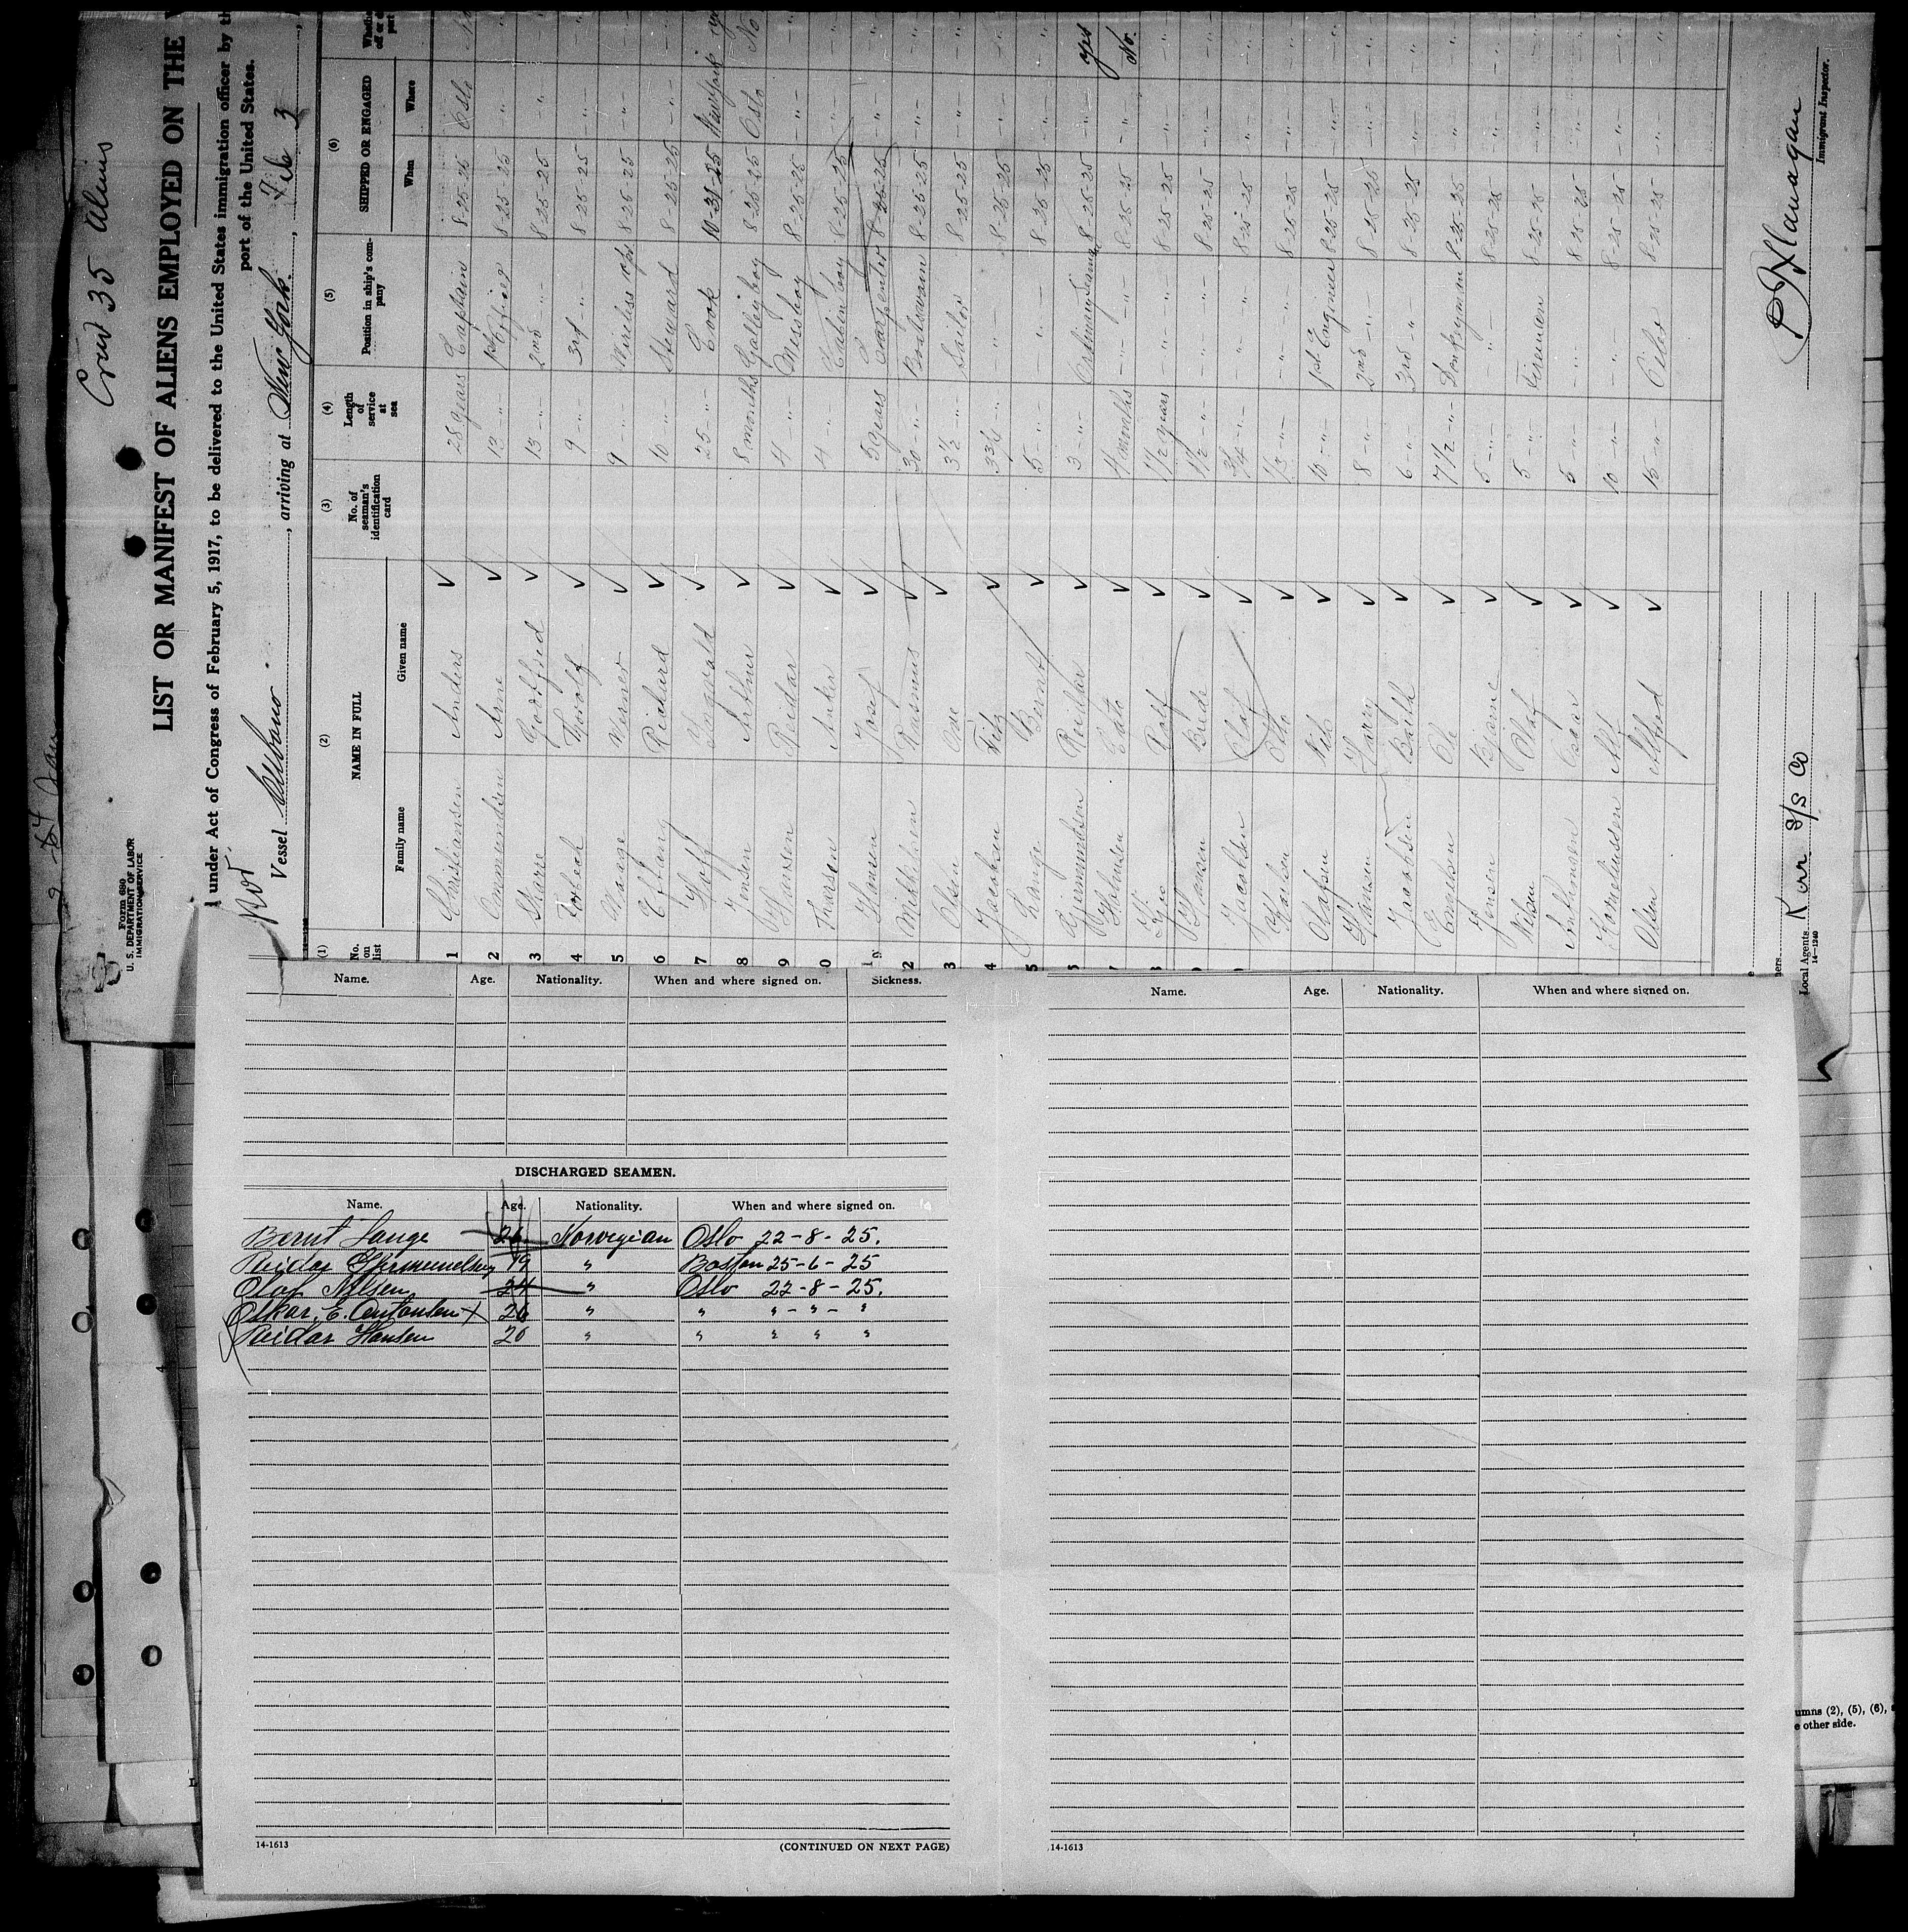 Crew 35 Aliens
Form 680
U. S. DEPARTMENT OF LABOR
IMMIGRATION SERVICE
LIST OR MANIFEST OF ALIENS EMPLOYED ON THE
under Act of Congress of February 5, 1917, to be delivered to the United States immigration officer by th
port of the United States.
Nor
Vessel , arriving at New York , Feb 3
(1) (2) (3) (4) (5) (6)
No. on list NAME IN FULL No. of seaman's identification card Length of service at sea Position in ship's company SHIPPED OR ENGAGED
Family name Given name When Where
1 Christiansen Anders 25 years Captain 8-25-25 Oslo
2 Ommundsen Arne 13 -"- 1st Officer 8-25-25 -"-
3 Skarre Godtfred 13 -"- 2nd -"- 8-25-25 -"-
4 Thorolf 9 -"- 3rd -"- 8-25-25 -"-
5 Waage Werner 9 -"- Wireless opr 8-25-25 -"-
6 Eftang Richard 10 -"- Steward 8-25-25 -"-
7 Hoff Ingvald 25 -"- Cook 10-31-25 No
8 Jensen Arthur 8 months Galleyboy 8-25-25 Oslo No
9 Hansen Reidar 4 -"- Messboy 8-25-25 -"-
0 Thorsen Anker 4 -"- Cabinboy 8-25-25 -"-
1 Hansen Josef 5 years Carpenter 8-25-25 "
2 Mikkelsen Rasmus 30 -"- Boatswain 8-25-25 -"-
3 Olsen Ove 3 1/2 -"- Sailor 8-25-25 -"-
4 Jacobsen Fritz 3 3/4 -"- -"- 8-25-25 -"-
5 Lange Bernt 5 -"- -"- 8-25-25 -"-
6 Gjermundsen Reidar 3 -"- Ordinary Seaman 8-25-25 -"- yes
7 Halvorsen 4 months -"- -"- 8-25-25 -"- No.
8 Rolf 1 1/2 years -"- -"- 8-25-25 -"-
9 Hansen 1 1/2 -"- -"- -"- 8-25-25 -"-
Jacobsen Olaf 3/4 -"- " 8-25-25 -"-
Karlsen Otto 1/2 -"- -"- 8-25-25 -"-
Olafsen 10 -"- 1st Engineer 8-25-25 -"-
Hansen Harry 8 -"- 2nd -"- 8-25-25 -"-
Jacobsen 6 -"- 3rd " 8-25-25 -"-
Engelsen Ole 7 1/2 -"- Donkeyman 8-25-25 "
Jensen Bjarne 5 -"- " 8-25-25 -"-
Nilsen Olaf 5 -"- Fireman 8-25-25 -"-
Antonsen Oscar 5 -"- -"- 8-25-25 -"-
Korneliussen Alf 10 -"- -"- 8-25-25 -"-
Olsen Alfred 15 -"- Oiler 8-25-25 -"-
P Flanagan
Immigrant Inspector.
Local Agents Kerr S/S Co
14-1240
Name. Age. Nationality. When and where signed on. Sickness.
DISCHARGED SEAMEN.
Name. Age. Nationality. When and where signed on.
Bernt Lange 26 Norwegian Oslo 22-8-25.
Reidar Gjermundsen 19 " Boston 25-6-25
Olaf Nilsen 24 " Oslo 22-8-25.
Oskar, E. Antonsen X 26 " " " - " - "
Reidar Hansen 20 " " " " "
14-1613 (CONTINUED ON NEXT PAGE)
Name. Age. Nationality. When and where signed on.
14-1613
umns (2), (5), (6),
e other side.